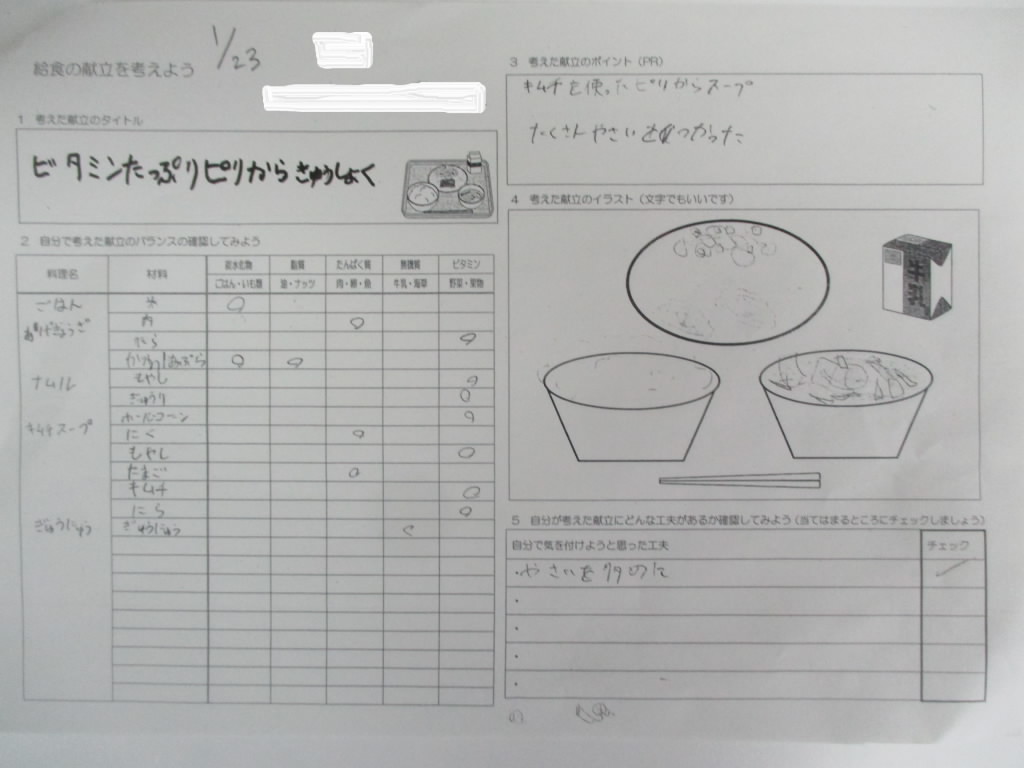 1/23
給食の献立を考えよう
1 考えた献立のタイトル
ビタミンたっぷりピリからきゅうしょく
2 自分で考えた献立のバランスの確認してみよう
料理名 材料 炭水化物 脂質 たんぱく質 無機質 ビタミン
ごはん・いも類 油・ナッツ 肉・卵・魚 牛乳・海草 野菜・果物
ごはん 米
あげぎょうざ 肉
にら
もやし
ナムル
きゅうり
ホールコーン
キムチスープ にく
もやし
たまご
キムチ
にら
ぎゅうにゅう ぎゅうにゅう
3 考えた献立のポイント（PR）
キムチを使ったピリからスープ
たくさんやさいをつかった
4 考えた献立のイラスト（文字でもいいです）
牛乳
5 自分が考えた献立にどんな工夫があるか確認してみよう（当てはまるところにチェックしましょう）
自分で気を付けようと思った工夫 チェック
・やさいを多めに
・
・
・
・